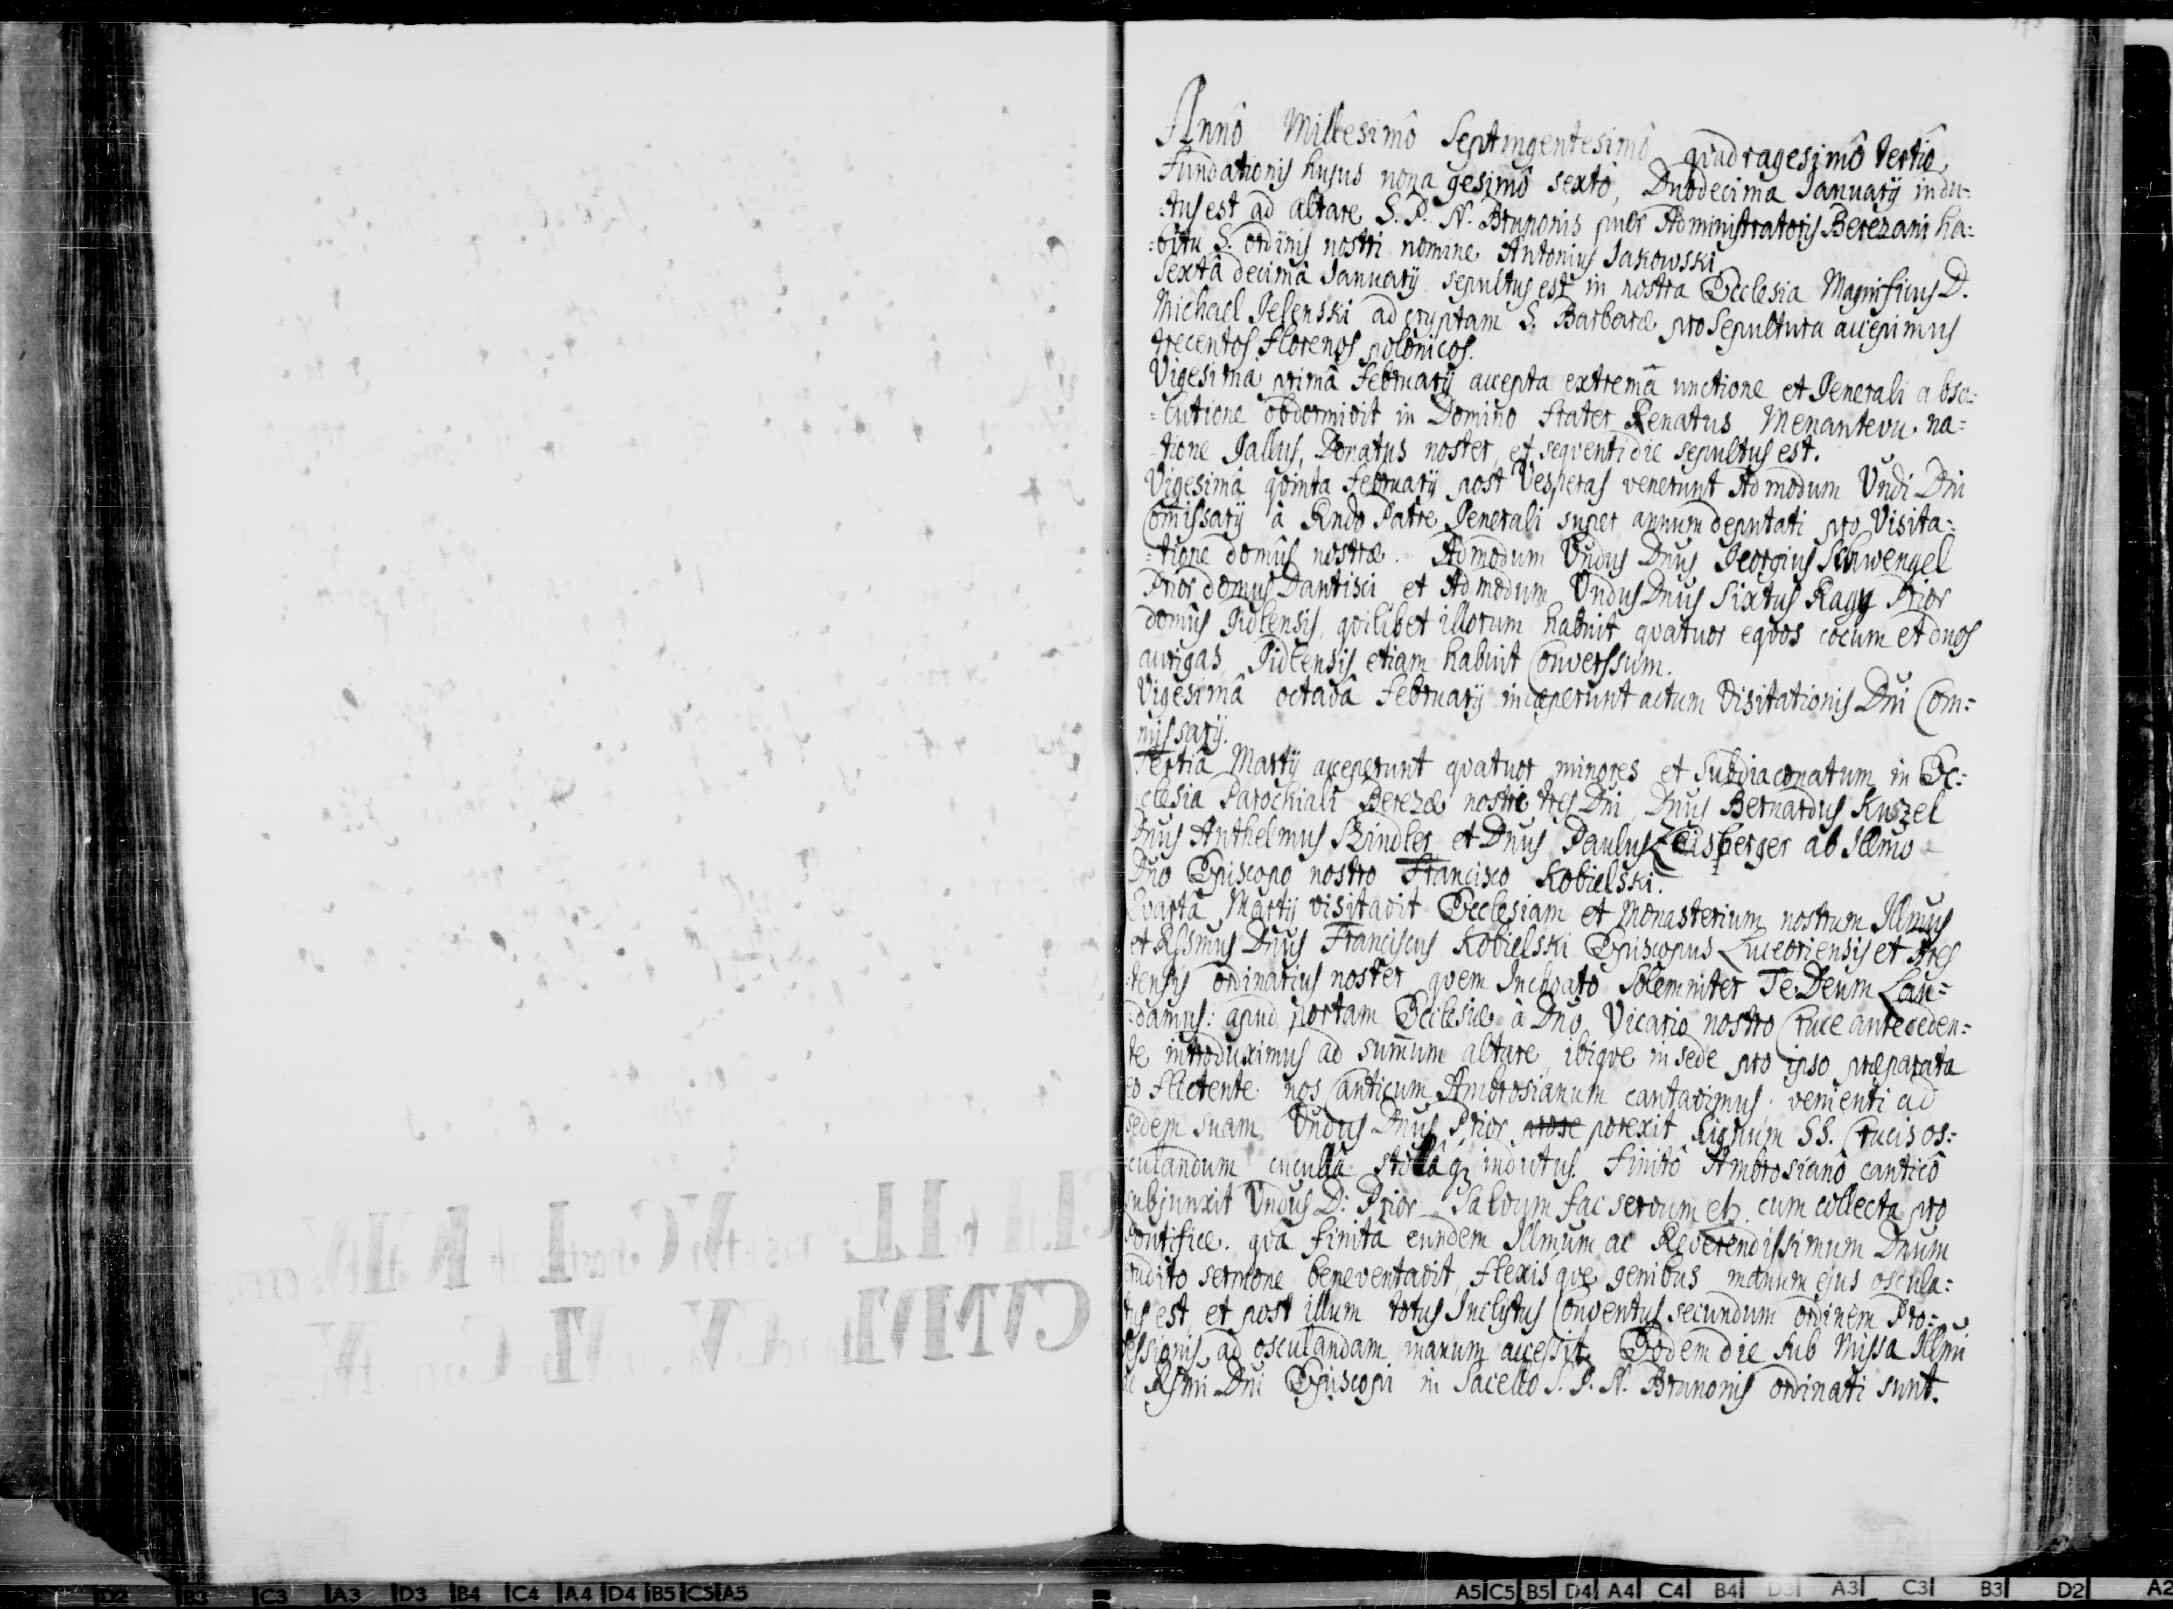 Annô Millesimô Septingentesimô qvadragesimô tertiô,
fundationis hujus nonagesimô sextô, Duodecima January indu=
=tus est ad altare S. P. N. Brunonis puer Administratoris Berezani ha=
=bitu S. ordinis nostri nomine Antonius Jakowski
Sextâ decimâ January sepultus est in nostra Ecclesia Magnificus D.
Michael Jelenski ad cryptam S. Barbaræ pro sepultura accepimus
trecentos florenos polonicos.
Vigesima primâ February accepta extremâ unctione et Generali abso=
=lutione obdormivit in Domino frater Renatus Menantevu na=
=tione Gallus, Donatus noster, et seqventi die sepultus est.
Vigesimâ qvinta February post Vesperas venerunt Admodum Vndi Dni
Comissary à Rndo Patre Generali super annum deputati pro Visita=
=tione domûs nostræ. Admodum Vndus Dnus Georgius Schwengel
Prior domus Dantisci et Admodum Vndus Dnus Sixtus Ragy Prior
domûs Gidlensis, qvilibet illorum habuit qvatuor eqvos cocum et duos
aurigas, Gidlensis etiam habuit Conversum.
Vigesimâ octavâ February incæperunt actum Visitationis Dni Com=
missary.
Tertia Marty acceperunt qvatuor minores et Subdiaconatum in Ec=
clesia Parochiali Berezæ nostri tres Dni, Dnus Bernardus Kuszel
Dnus Anthelmus Bindler et Dnus Paulus Leisberger ab Illmo
Dno Episcopo nostro Francisco Kobielski.
Qvartâ Marty visitavit Ecclesiam et Monasterium nostrum Illmus
et Rssmus Dnus Franciscus Kobielski Episcopus Luceoriensis et Bres
tensis ordinarius noster qvem Inchoato Solemniter Te Deum Lau=
=damus: apud portam Ecclesiæ à Dno Vicario nostro Cruce anteceden=
te introduximus ad summum altare, ibiqve in sede pro ipso præparata
eo flectente nos Canticum Ambrosianum cantavimus, venienti ad
sedem suam Vndus Dnus Prior porexit Lignum SS. Crucis os=
culandum cucullâ stollâq indutus. Finitô Ambrosianô canticô
subjunxit Vndus D: Prior Salvum fac servum et. cum collecta pro
Pontifice. qvâ finitâ eundem Illmum ac Reverendissimum Dnum
erudito sermone beneventavit flexis qve genibus manum ejus oscula=
tus est, et post illum totus Inclytus Conventus secundum ordinem Pro=
essionis ad osculandam manum accessit. Eodem die sub Missa Illmi
ac Rsmi Dni Episcopi in Sacello S. P. N. Brunonis ordinati sunt.
A5 C5 B5 D4 A4 C4 B4 D3 A3 C3 B3 D2 A2
D2 B3 C3 A3 D3 B4 C4 A4 D4 B5 C5 A5